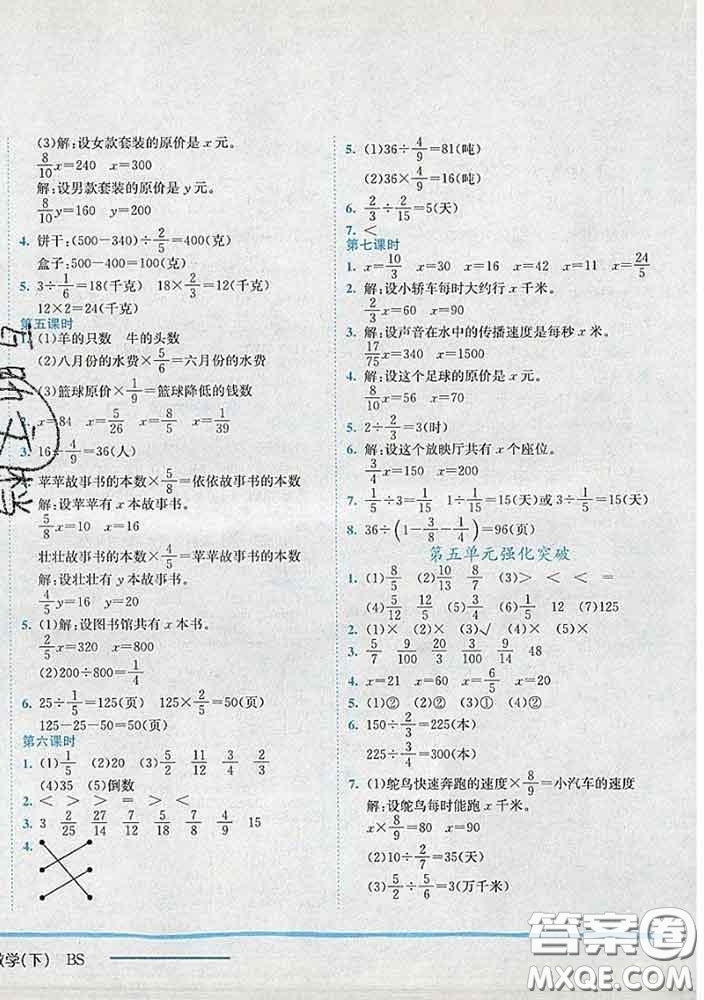 (3)解:设女款套装的原价是 x 元。
8/10 x=240 x=300
解:设男款套装的原价是 y 元。
8/10 y=160 y=200
4. 饼干:(500-340)÷2/5=400(克)
盒子:500-400=100(克)
5. 3÷1/6=18(千克) 18×2/12=3(千克)
12×2=24(千克)
第五课时
1. (1)羊的只数 牛的头数
(2)八月份的水费×5/6=六月份的水费
(3)篮球原价×1/9=篮球降低的钱数
x=84 x=5/26 x=8/5 x=1/39
3. 16÷4/9=36(人)
苹苹故事书的本数×5/8=依依故事书的本数
解:设苹苹有 x 本故事书。
5/8 x=10 x=16
壮壮故事书的本数×4/5=苹苹故事书的本数
解:设壮壮有 y 本故事书。
4/5 y=16 y=20
5. (1)解:设图书馆共有 x 本书。
2/5 x=320 x=800
(2)200÷1/4=800(本)
6. 25÷1/5=125(页) 125×2/5=50(页)
125-25-50=50(页)
第六课时
1. (1)1/5 (2)20 (3)5/2 11/12 3/4 2/3
(4)35 (5)倒数
2. < > > = < >
3. 3 2/25 27/14 7/12 5/18 7/8 4/9 15
4.
5. (1)36÷4/9=81(吨)
(2)36×4/9=16(吨)
6. 2/3÷2/15=5(天)
7. <
第七课时
1. x=10/3 x=30 x=16 x=42 x=11 x=24/5
2. 解:设小轿车每时大约行 x 千米。
2/3 x=60 x=90
3. 解:设声音在水中的传播速度是每秒 x 米。
17/75 x=340 x=1500
4. 解:设这个足球的原价是 x 元。
8/10 x=56 x=70
5. 2÷2/3=3(时)
6. 解:设这个放映厅共有 x 个座位。
3/4 x=150 x=200
7. 1/5÷3=1/15 1÷1/15=15(天)或3÷1/5=15(天)
8. 36÷(1-3/8-1/4)=96(页)
第五单元强化突破
1. (1)8/5 (2)10/13 8/7 (3)> < < =
(4)5/12 5/12 (5)4/15 (6)1/5 12 (7)125
2. (1)× (2)× (3)√ (4)×
3. 5/7 9/100 3/20 9/100 9/14 48
4. x=21 x=60 x=6/5 x=20
5. (1)② (2)② (3)① (4)②
6. 150÷2/3=225(本)
225÷3/4=300(本)
7. (1)鸵鸟快速奔跑的速度×8/9=小汽车的速度
解:设鸵鸟每时能跑 x 千米。
x×8/9=80 x=90
(2)10÷2/7=35(天)
(3)5/2÷5/6=3(万千米)
数学(下) BS
答案圈
MXQE.COM